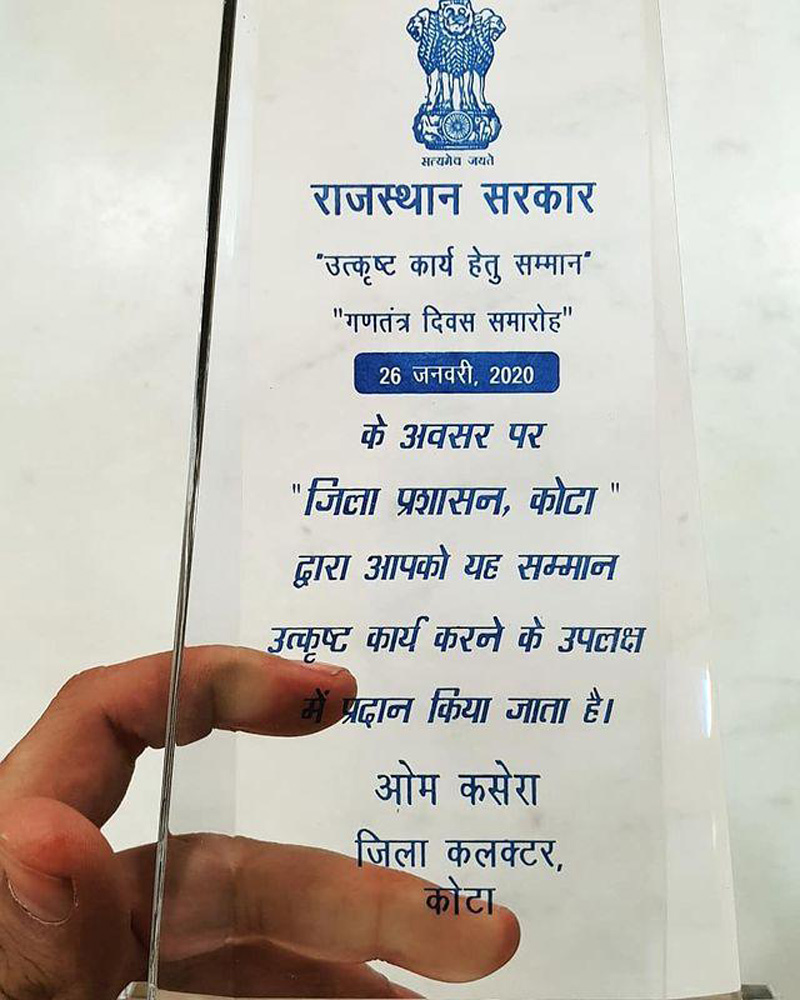 सत्यमेव जयते
राजस्थान सरकार
"उत्कृष्ट कार्य हेतु सम्मान"
"गणतंत्र दिवस समारोह"
26 जनवरी, 2020
के अवसर पर
"जिला प्रशासन, कोटा "
द्वारा आपको यह सम्मान
उत्कृष्ट कार्य करने के उपलक्ष
में प्रदान किया जाता है।
ओम कसेरा
जिला कलक्टर,
कोटा